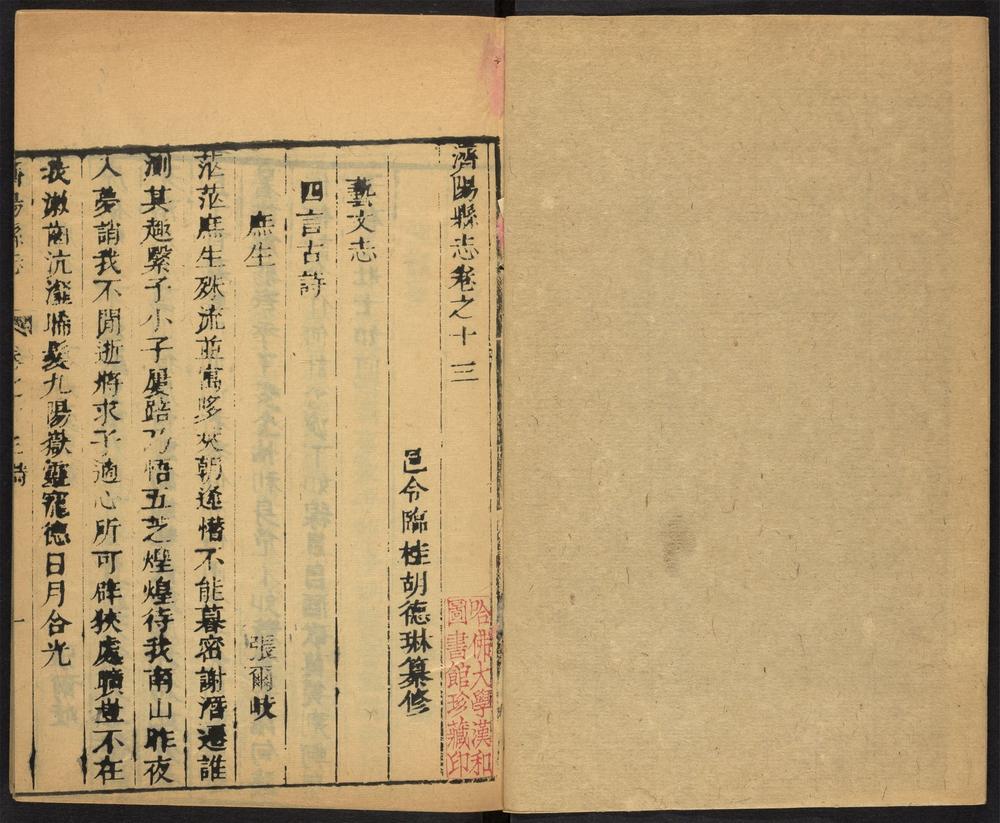 濟陽縣志卷之十三
邑令臨桂胡德琳纂修
哈佛大學漢和
圖書館珍藏印
藝文志
四言古詩
庶生 張爾岐
茫茫庶生殊流並寓眇矣朝逢惜不能暮密謝潛遷誰
測其趣繄予小子屢踣乃悟五芝煌煌待我南山昨夜
入夢誚我不閒逝將求予適心所可辟狹處曠豈不在
我漱齒沆瀣晞髮九陽嶽靈寵德日月合光
濟陽縣志 卷之十三 詩 一